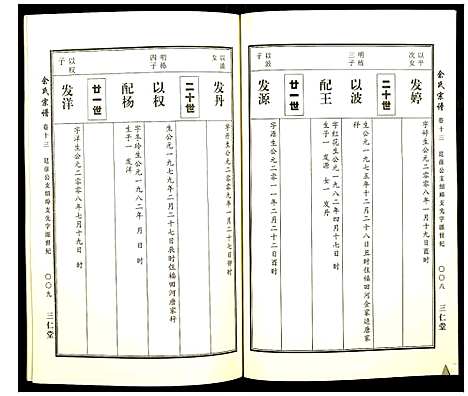 余氏宗谱
卷十三
〇〇八
三仁堂
以平
次女
发婷
字婷生公元二〇〇八年七月二十九日 时
二十世
明栋
三子
以波
生公元一九七五年十二月二十八日丑时住福田河余家边唐家
配王
字红花生公元一九八二年四月十七日 时
生子一 发源 女一 发丹
廿一世
以波
子
发源
字源生公元二〇〇一年二月十二日酉时
以波
女
发丹
字丹生公元二〇〇九年一月二十七日 时
二十世
明杨
四子
以权
生公元一九七九年二月二十七日辰时住福田河唐家
配杨
字冬玲生公元一九八二年 月 日 时
生子一 发洋
廿一世
以权
子
发洋
字洋生公元二〇〇八年七月十九日 时
余氏宗谱
卷十三
〇〇九
三仁堂